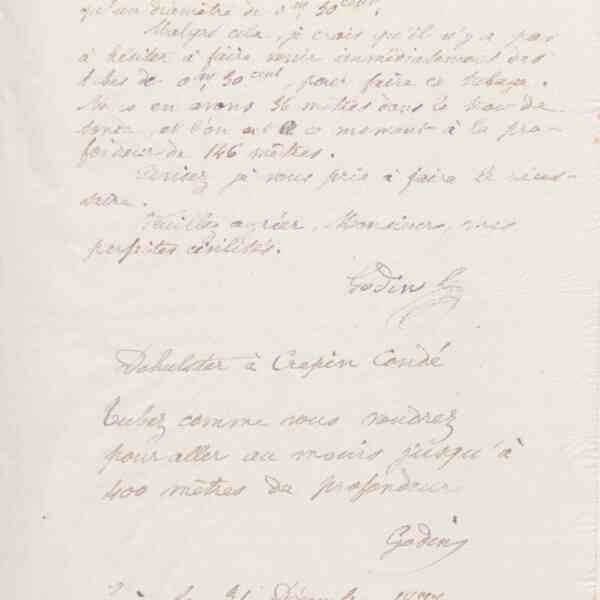 qu'un diamètre de 0m,30cent.
Malgré cela, je crois qu'il n'y a pas
à hésiter à faire venir immédiatement des
tubes de 0m,30cent, pour faire ce tubage.
Nous en avons 36 mètres dans le trou de
sonde, et l'on est en ce moment à la pro-
fondeur de 146 mètres.
Avisez je vous prie à faire le néces-
saire.
Veuillez agréer, Messieurs, mes
parfaites civilités.
Godin
à Crepin Condé
Tubez comme vous voudrez
pour aller au moins jusqu'à
400 mètres de profondeur
Godin
31 Décembre